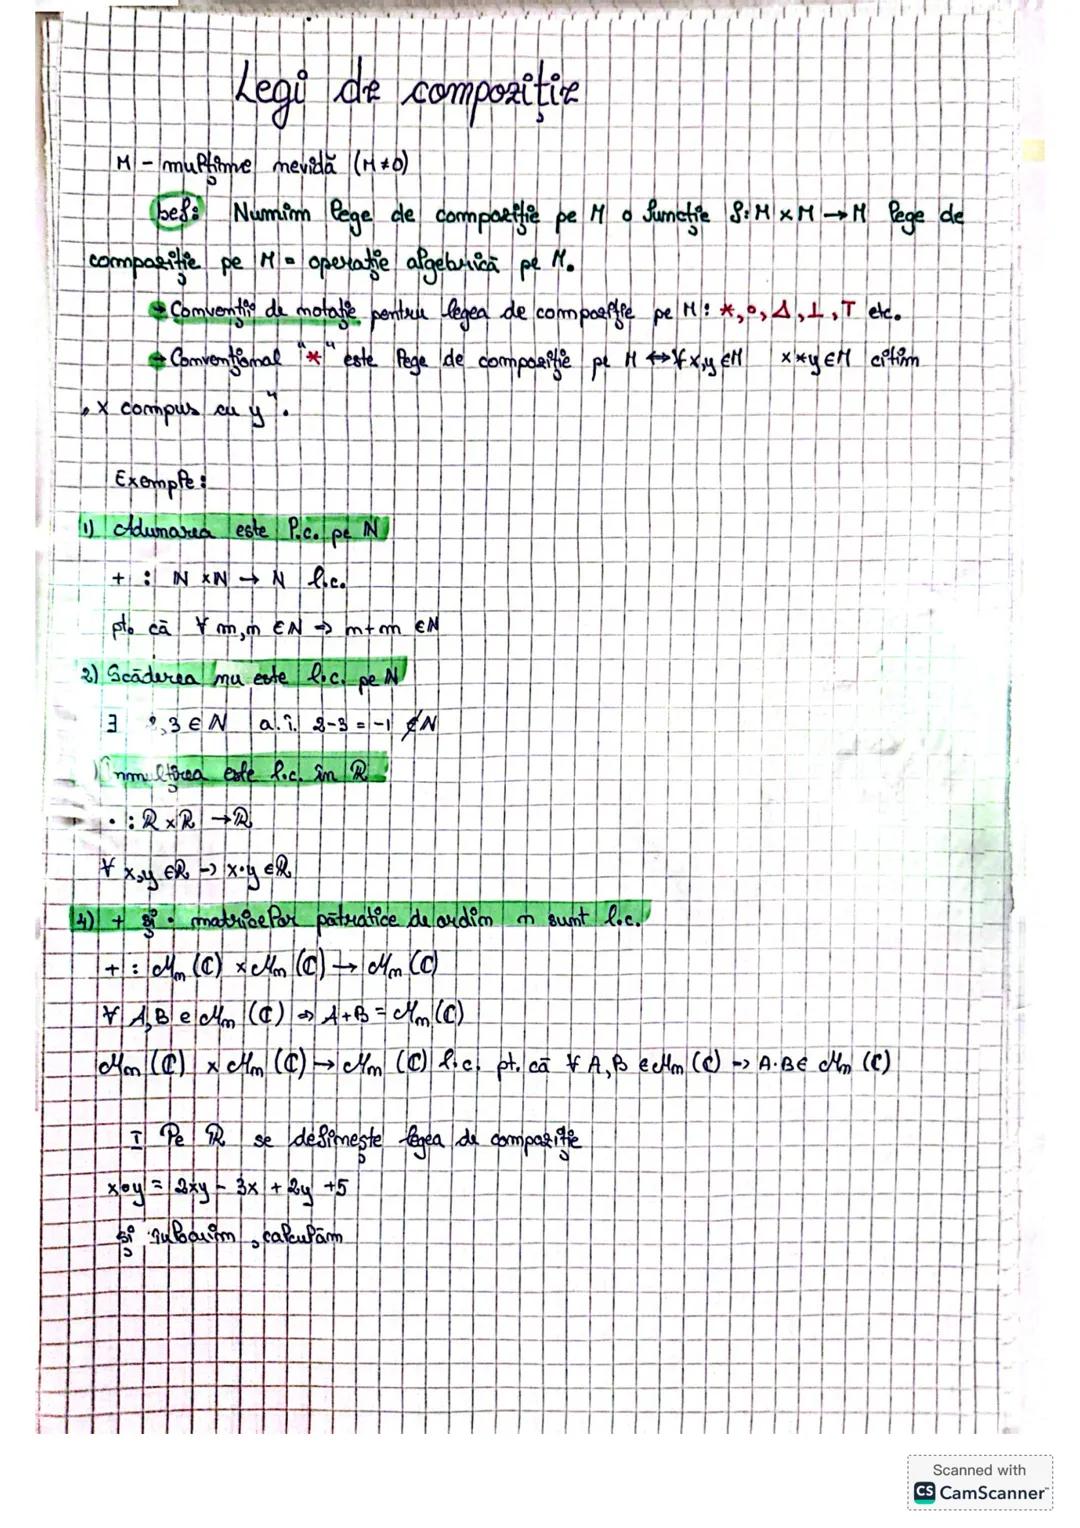 Legi de compoziție
M - mulțime nevidă (M≠0)
Def: Numim lege de compoziție pe M o funcție f: M x M → M lege de
compoziție pe M = operație algebrică pe M.
→ Convenție de notație pentru legea de compoziție pe M: *, ∘, Δ, ⊥, T etc.
→ Convențional "*" este lege de compoziție pe M ↔ ∀ x,y ∈ M x*y ∈ M citim
„x compus cu y".
Exemple:
1) Adunarea este l.c. pe N
+ : N x N → N l.c.
pt. că ∀ m,n ∈ N ⇒ m+n ∈ N
2) Scăderea nu este l.c. pe N
∃ 2,3 ∈ N a.î. 2-3 = -1 ∉ N
) Înmulțirea este l.c. în R
· : R x R → R
∀ x,y ∈ R → x·y ∈ R
4) + și · matricelor pătratice de ordin n sunt l.c.
+ : Mn (C) x Mn (C) → Mn (C)
∀ A,B e Mn (C) ⇒ A+B = Mn (C)
Mn (C) x Mn (C) → Mn (C) l.c. pt. că ∀ A,B e Mn (C) → A·B ∈ Mn (C)
I Pe R se definește legea de compoziție
x∘y = 2xy - 3x + 2y +5
și , calculăm
Scanned with
CS CamScanner